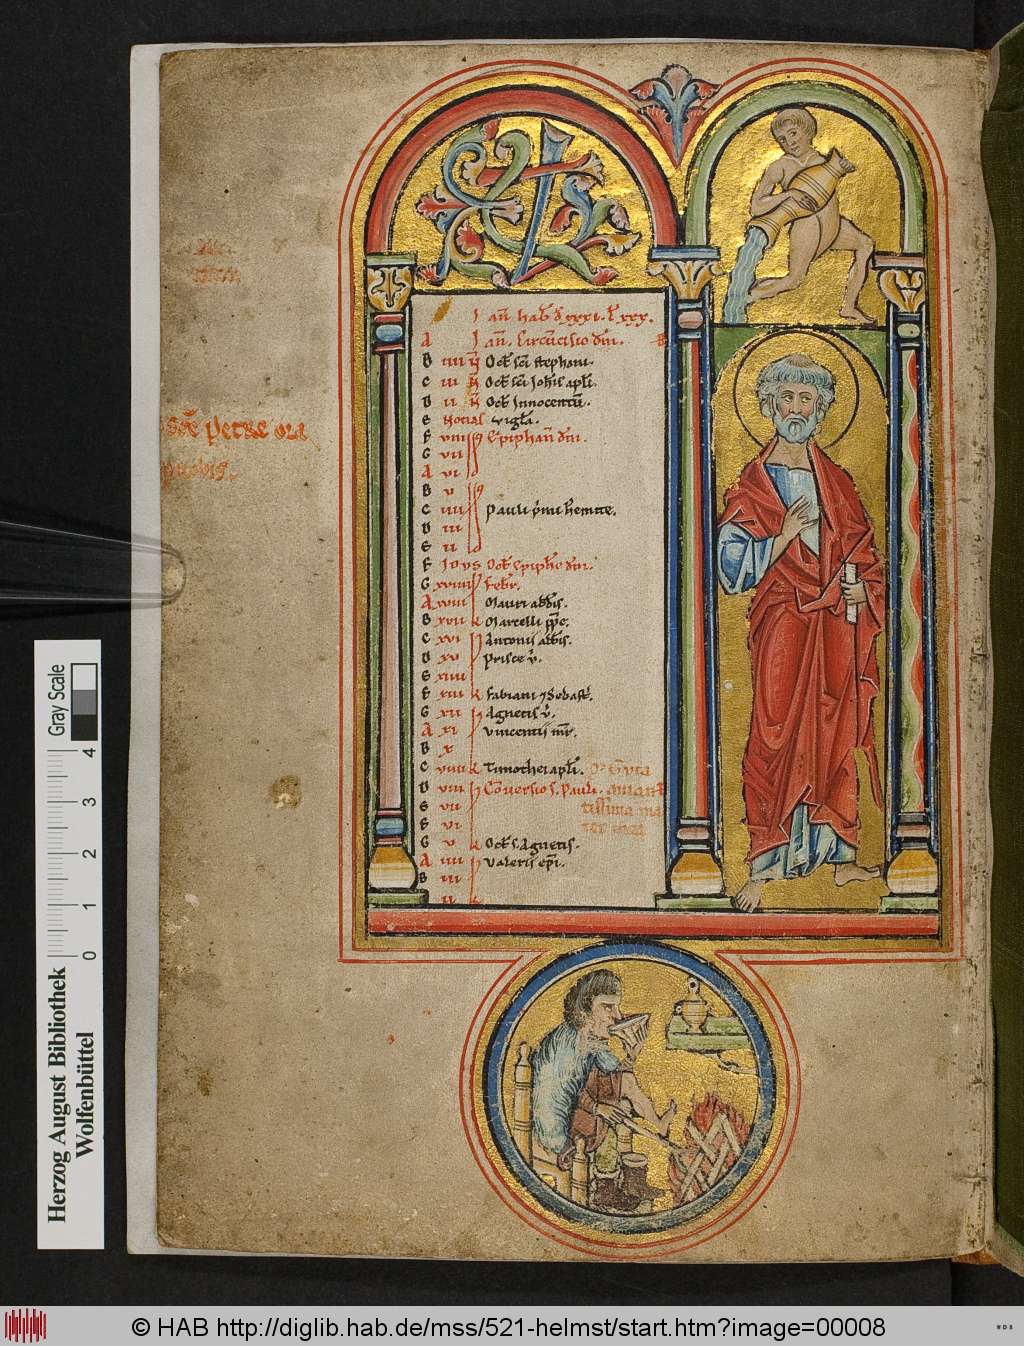 KL
Ian̄. hab̄ d̄ xxxi. l̄ xxx.
A Ian̄. Circūcisio dn̄i.
B iiii N̄ Oct̄ sc̄i stephani.
C iii N̄ Oct̄ sc̄i Ioh̄is apl̄i.
D ii N̄ Oct̄ Innocentū.
E Nonas vigl̄a.
F viii Epiphan̄ dn̄i.
G vii
A vi
B v
C iiii Pauli p̄mi heremite.
D iii
E ii
F Idus Oct̄ Epiphīe dn̄i.
G xviiii Febr̄.
A xviii Mauri abb̄is.
B xvii K Marcelli pp̄e.
C xvi Antonii abb̄is.
D xv Prisce v̄.
E xiiii
F xiii K Fabiani ⁊ Sebast̄.
G xii Agnetis v̄.
A xi vincentii mr̄.
B x
C viiii K Timothei apl̄i.
D viii Cōversio s. Pauli.
E vii
F vi
G v K Oct̄ s. Agnetis.
A iiii Valerii ep̄i.
B iii
ii
sc̄e petre ora
nobis.
Gray Scale
4 3 2 1 0
Herzog August Bibliothek
Wolfenbüttel
© HAB http://diglib.hab.de/mss/521-helmst/start.htm?image=00008